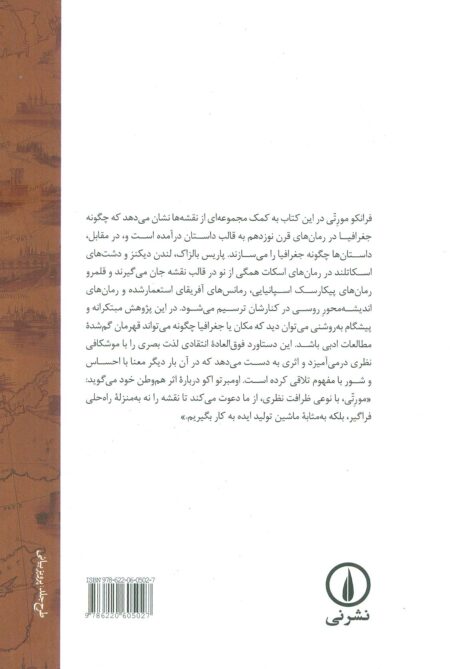 فرانکو مورتّی در این کتاب به کمک مجموعه‌ای از نقشه‌ها نشان می‌دهد که چگونه
جغرافیـا در رمان‌های قرن نوزدهم به قالب داستان درآمده است و، در مقابل،
داستان‌ها چگونه جغرافیا را می‌سازند. پاریس بالزاک، لندن دیکنز و دشت‌های
اسکاتلند در رمان‌های اسکات همگی از نو در قالب نقشه جان می‌گیرند و قلمرو
رمان‌های پیکارسک اسـپانیایی، رمانس‌های آفریقای استعمارشده و رمان‌های
اندیشـه‌محور روسـی در کنارشان ترسیـم می‌شود. در این پژوهش مبتکرانه و
پیشگام به‌روشنی می‌توان دید که مکان یا جغرافیا چگونه می‌تواند قهرمان گم‌شدهٔ
مطالعات ادبی باشد. این دستاورد فوق‌العادهٔ انتقادی لذت بصری را با موشکافی
نظری درمی‌آمیزد و اثری به دست می‌دهد که در آن بار دیگر معنا با احساس
و شور با مفهوم تلاقی کرده است. اومبرتو اکو دربارهٔ اثر هم‌وطن خود می‌گوید:
«مورتّی، با نوعی ظرافت نظری، از ما دعوت می‌کند تا نقشه را نه به‌منزلهٔ راه‌حلی
فراگیر، بلکه به‌مثابهٔ ماشین تولید ایده به کار بگیریم.»
طرح جلد: پرویز بیانی
ISBN 978-622-06-0502-7
9 786220 605027
نشرنی